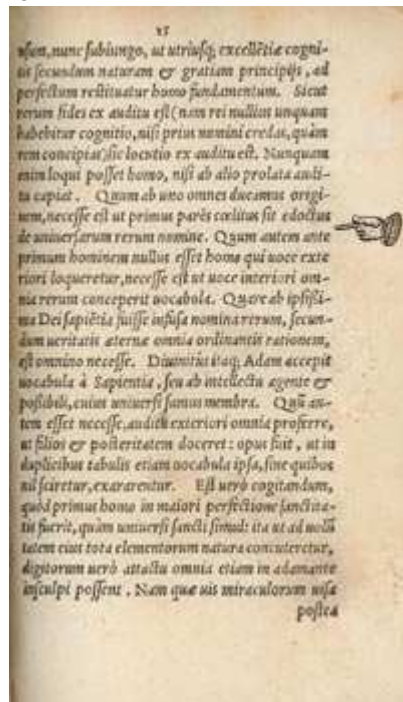 15
usum, nunc subiungo, ut utriusq; excellētiæ cogni-
tis secundum naturam & gratiam principijs, ad
perfectum restituatur homo fundamentum. Sicut
rerum fides ex auditu est (nam rei nullius unquam
habebitur cognitio, nisi prius nomini credas, quàm
rem concipias) sic locutio ex auditu est. Nunquam
enim loqui posset homo, nisi ab alio prolata audi-
ta capiat. Quum ab uno omnes ducamus origi-
nem, necesse est ut primus parēs cœlitus sit edoctus
de uniuersarum rerum nomine. Quum autem ante
primum hominem nullus esset homo qui uoce exte
riori loqueretur, necesse est ut uoce interiori om-
nia rerum conceperit uocabula. Quare ab ipsissi-
ma Dei sapiētia fuisse infusa nomina rerum, secun-
dum ueritatis æternæ omnia ordinantis rationem,
est omnino necesse. Diuinitus itaq; Adam accepit
uocabula à Sapientia, seu ab intellectu agente &
possibili, cuius uniuersi sumus membra. Quū au-
tem esset necesse, auditu exteriori omnia proferre,
ut filios & posteritatem doceret: opus fuit, ut in
duplicibus tabulis etiam uocabula ipsa, sine quibus
nil sciretur, exararentur. Est uerò cogitandum,
quòd primus homo in maiori perfectione sanctita-
tis fuerit, quàm uniuersi sancti simul: ita ut ad uolū
tatem eius tota elementorum natura concuteretur,
digitorum uerò attactu omnia etiam in adamante
insculpi possent. Nam quæ uis miraculorum uisa
postea